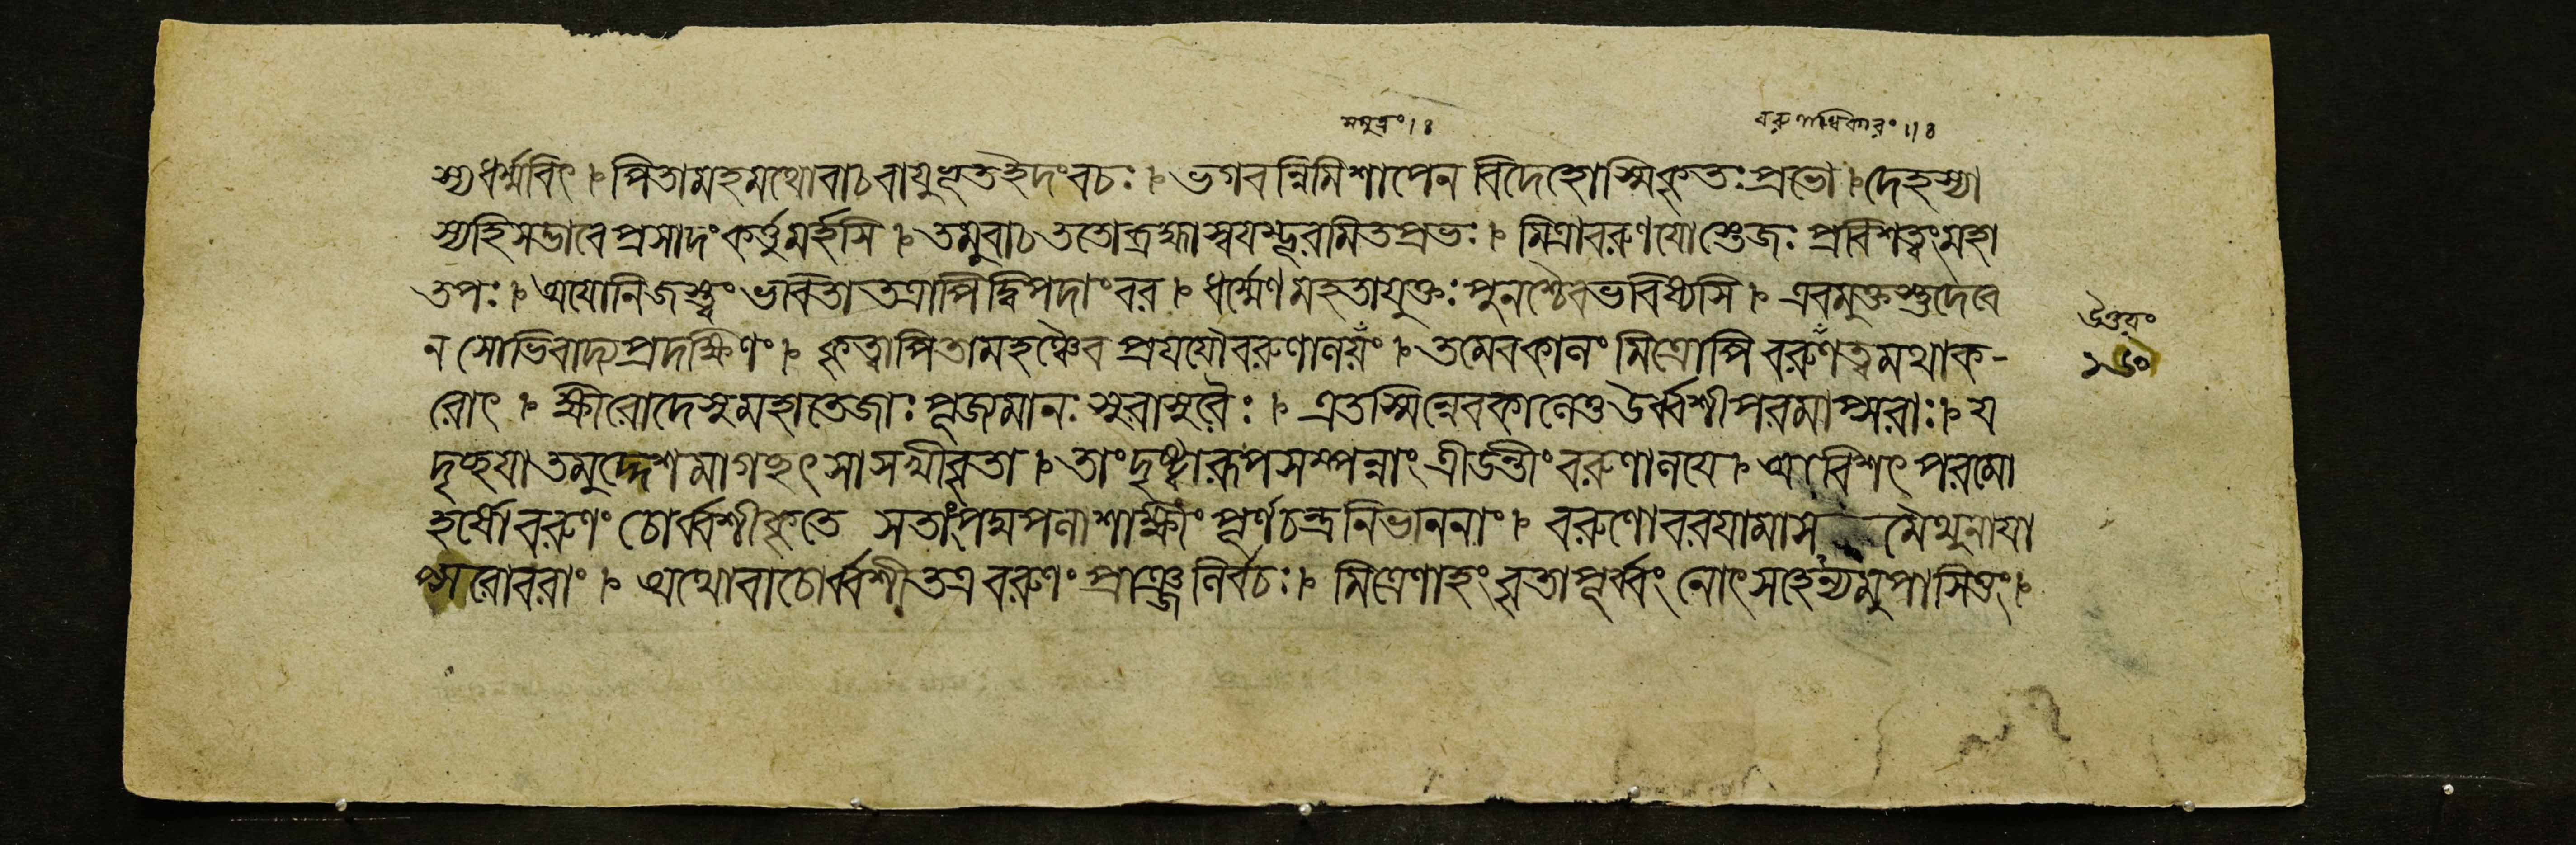 সমুদ্রং।৪
বরুণাধিকারং।।৪
স্যধর্ম্মবিৎ। পিতামহমথোবাচবাযুভূতইদংবচঃ। ভগবন্নিমিশাপেন বিদেহোস্মিকৃতঃপ্রভো। দেহস্যা
স্যহিসদ্ভাবে প্রসাদংকর্ত্তুমর্হসি। তমুবাচততোব্রহ্মাস্বযম্ভূরমিতপ্রভঃ। মিত্রাবরুণযোস্তেজঃ প্রবিশত্বংমহা
তপঃ। অযোনিজস্ত্বং ভবিতা তত্রাপিদ্বিপদাংবর। ধর্ম্মেণমহতাযুক্তঃপুনশ্চৈবভবিষ্যসি। এবমুক্তস্তুদেবে
ন সোভিবাদ্যপ্রদক্ষিণং। কৃত্বাপিতামহঞ্চৈব প্রযযৌবরুণালযঁং। তমেবকালং মিত্রোপি বরুণঁত্বমথাক-
রোৎ। ক্ষীরোদেসুমহাতেজাঃ পূজমানঃ সুরাসুরৈঃ। এতস্মিন্নেবকালেতুউর্ব্বশীপরমাপ্সরাঃ। য
দৃচ্ছযাতমুদ্দেশমাগচ্ছৎসাসখীবৃতা। তাংদৃষ্ট্বারূপসম্পন্নাং ক্রীডন্তীংবরুণালযে। আবিশৎ পরমো
হর্ষো বরুণং চোর্ব্বশীকৃতে সতাংপদ্মপলাশাক্ষীং পূর্ণচন্দ্রনিভাননাং। বরুণোবরযামাস মৈথুনাযা
প্সরোবরাং। অথোবাচোর্ব্বশীতত্র বরুণং প্রাঞ্জলির্বচঃ। মিত্রেণাহং বৃতাপূর্ব্বং নোৎসহেন্যমুপাসিতুং।
উত্তরং